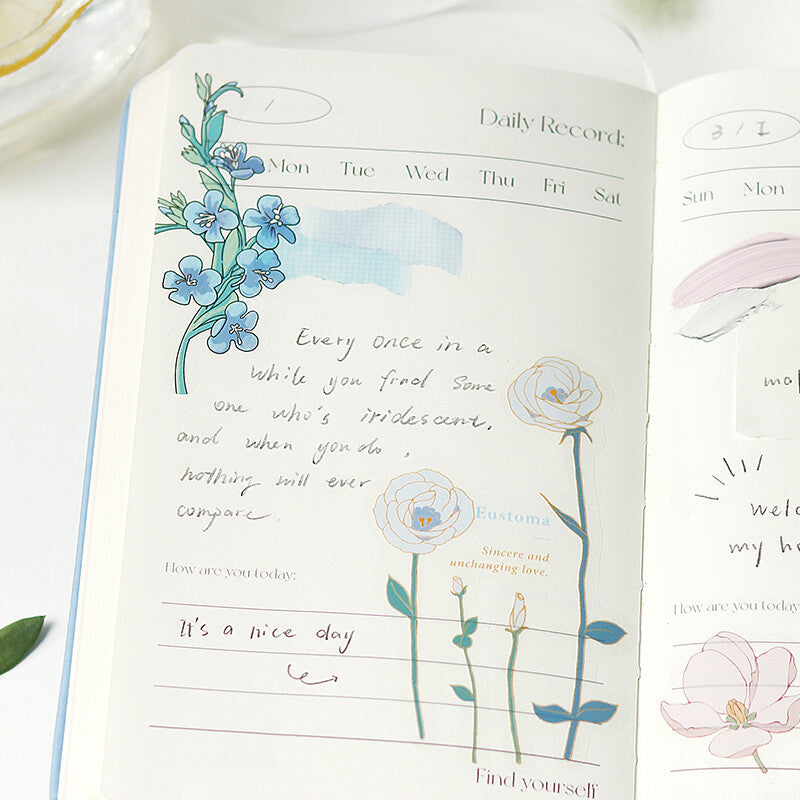 Daily Record:
Mon Tue Wed Thu Fri Sat
Every once in a
while you find some
one who's iridescent,
and when you do,
nothing will ever
compare.
Eustoma
Sincere and
unchanging love.
How are you today:
It's a nice day
Find yourself
3/1
Sun Mon
my
How are you today